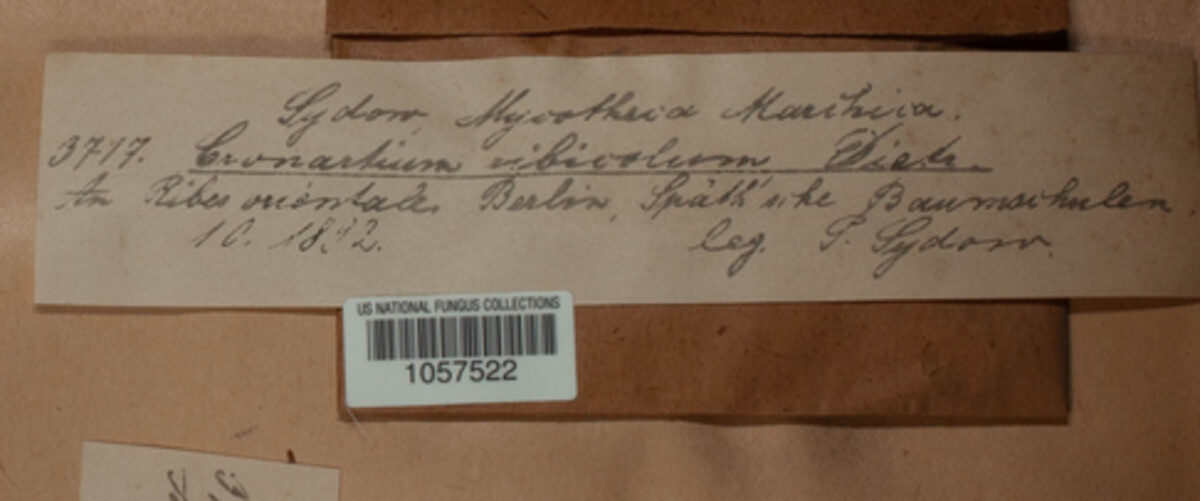 Sydow, Mycotheca Marchica.
3717. Cronartium ribicolum Dietr.
An Ribes orientale. Berlin, Späth'sche Baumschulen.
10. 1892. leg. P. Sydow.
US NATIONAL FUNGUS COLLECTIONS
1057522